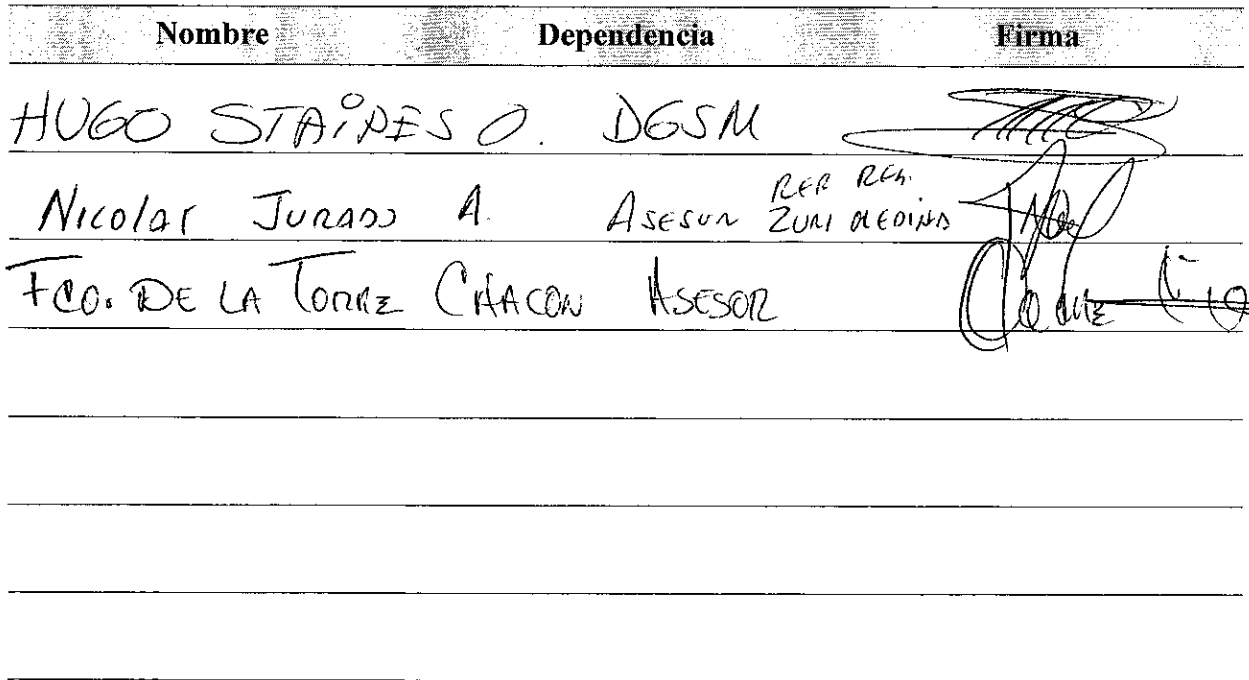 Nombre Dependencia Firma
HUGO STAIPES O. DGSM
Nicolas JURADO A. ASESOR REP REG. ZURI MEDINA
FCO. DE LA TORRE CHACON ASESOR